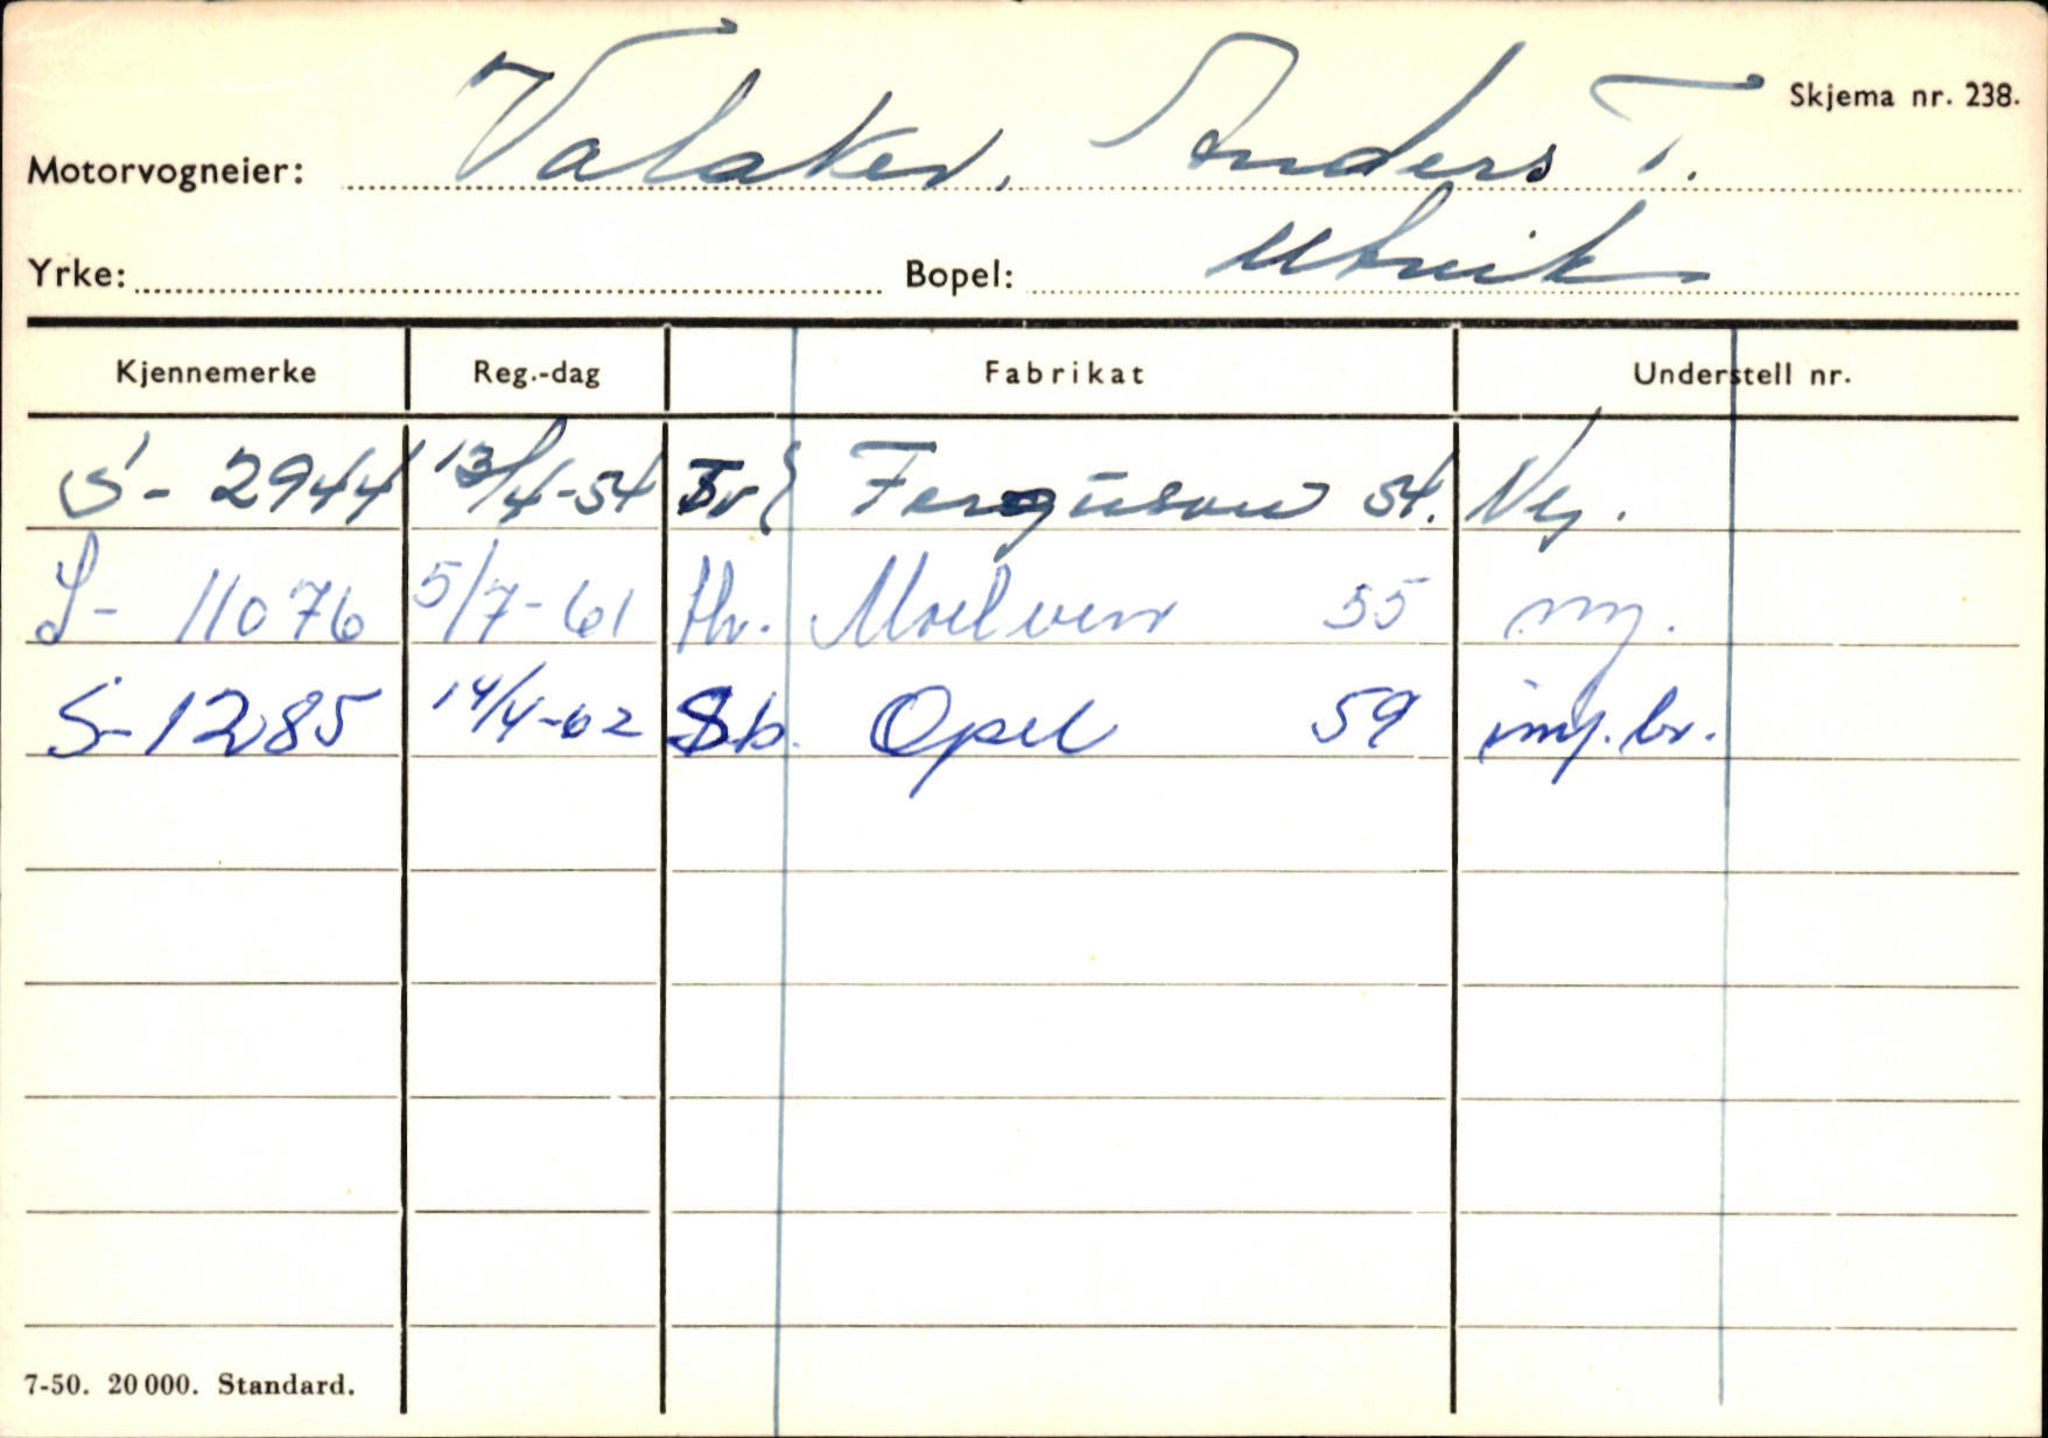 Skjema nr. 238.
Motorvogneier: Valaker, Anders T.
Yrke: Bopel: Utvik
Kjennemerke Reg.-dag Fabrikat Understell nr.
S- 2944 13/4-54 Tr Ferguson 54. Ny.
S- 11076 5/7-61 Hv. Moelven 55 ny.
S-12285 14/4-62 Sb. Opel 59 imp. br.
7-50. 20 000. Standard.